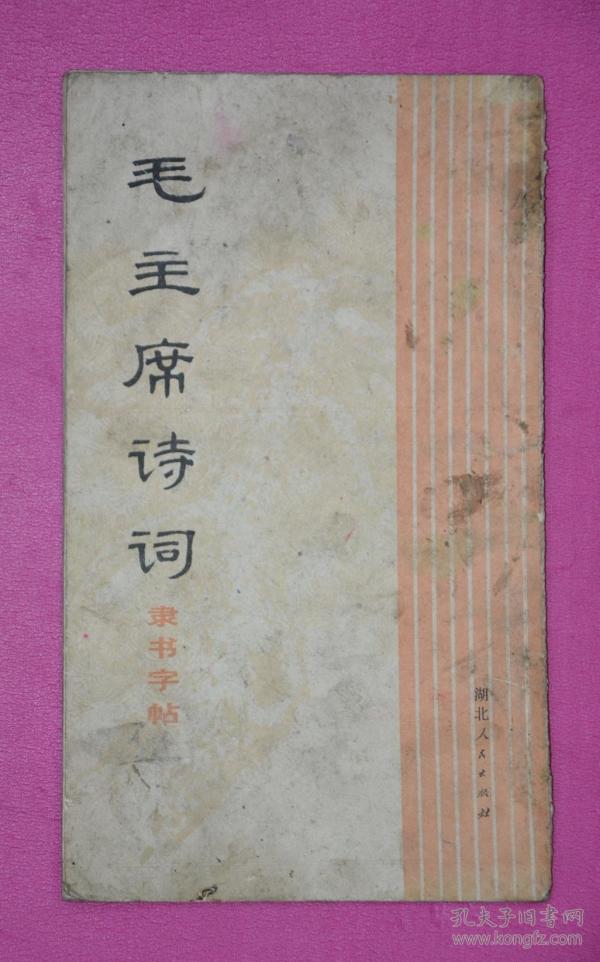 毛主席诗词
隶书字帖
湖北人民出版社
孔夫子旧书网
www.kongfz.com